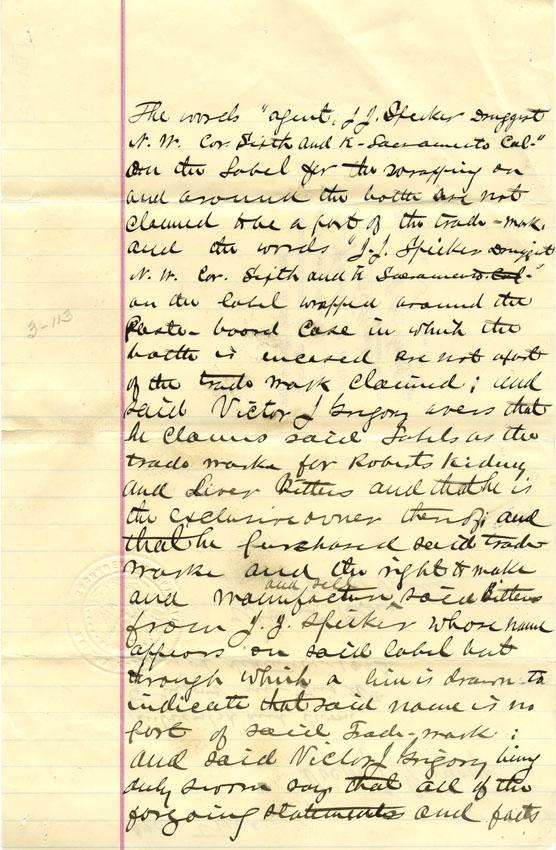 The words "agent, J. J. Spieker Druggist
N. W. Cor. Sixth and K - Sacramento Cal-"
on the Label for the wrapping on
and around the bottle are not
claimed to be a part of the trade-mark,
and the words "J. J. Spieker Druggist
N. W. Cor. Sixth and K Sacramento Cal-"
on the label wrapped around the
Paste-board Case in which the
bottle is incased are not a part
of the trade mark claimed; and
said Victor J Gregory avers that
he claims said Labels as the
trade marke for Roberts Kidney
and Liver Bitters and that he is
the exclusive owner thereof; and
that he purchased said trade-
marke and the right to make
and sell
and manufacture said Bitters
from J. J. Spieker whose name
appears on said label but
through which a line is drawn to
indicate that said name is no
part of said Trade-mark;
and said Victor J Gregory being
duly sworn says that all of the
forgoing statements and facts
3-113